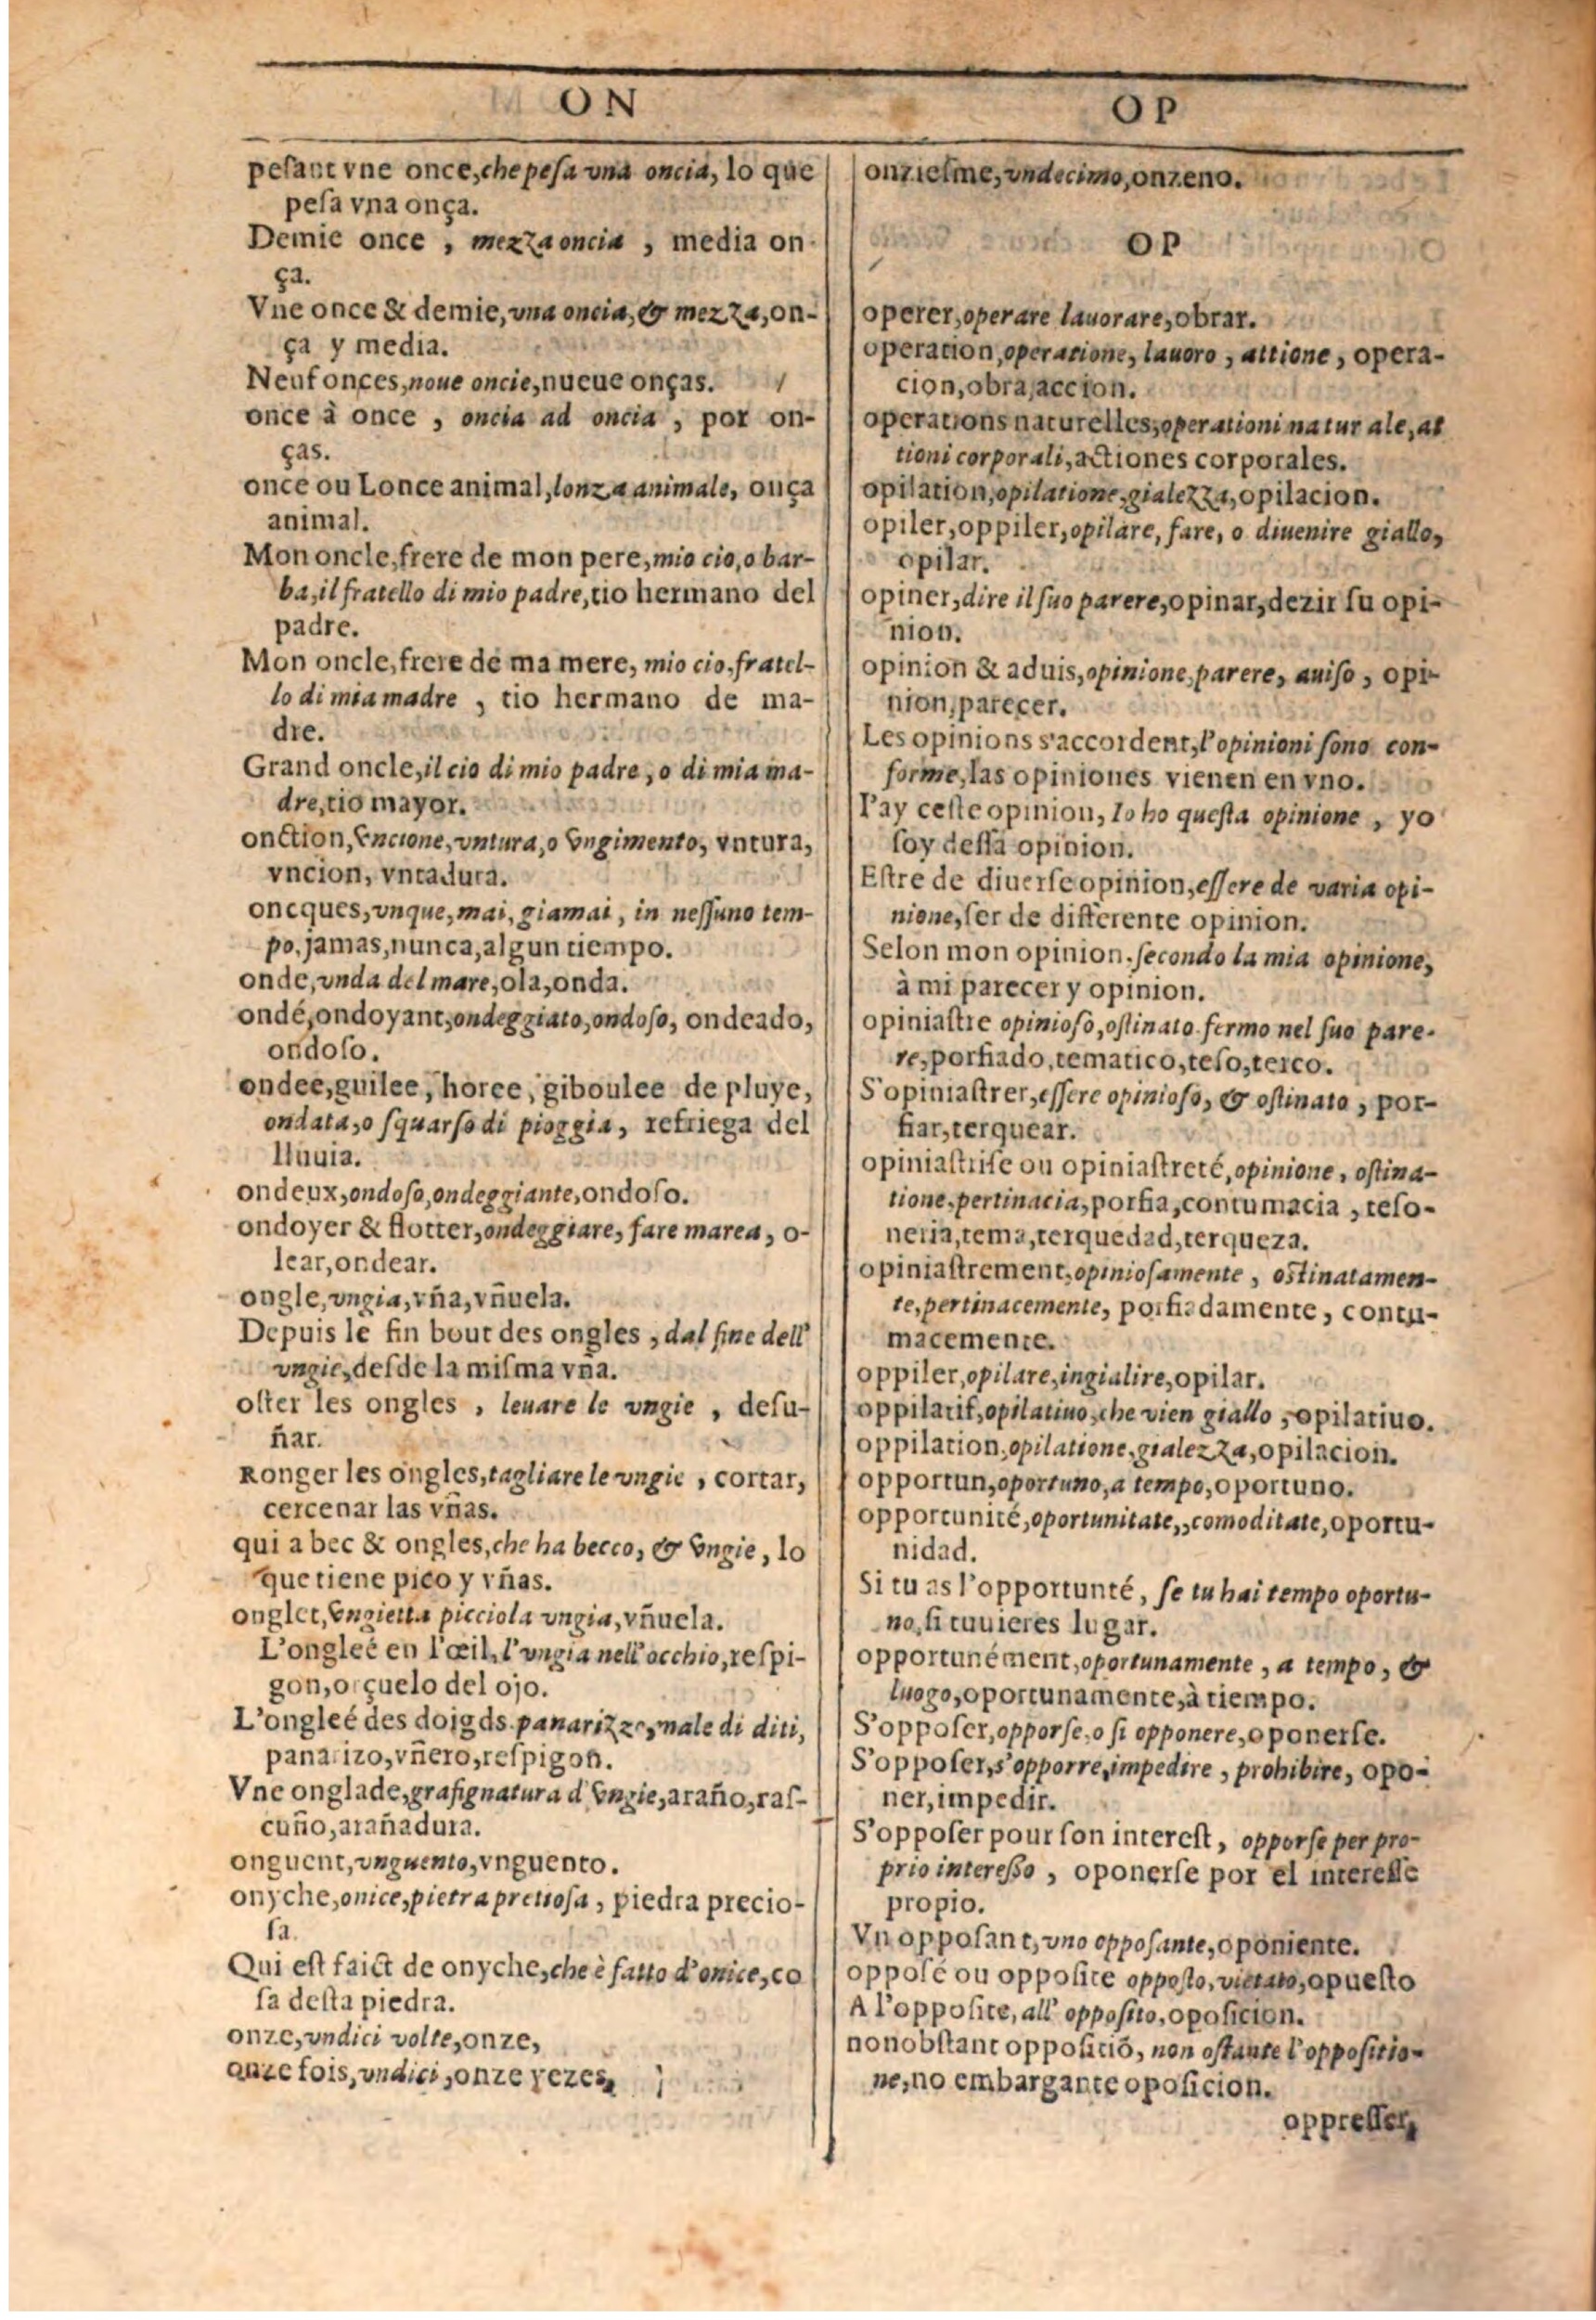 ON
peſant vne once, che peſa vna oncia, lo que
peſa vna onça.
Demie once , mezza oncia , media on-
ça.
Vne once & demie, vna oncia, & mezza, on-
ça y media.
Neuf onces, noue oncie, nueue onças.
once à once , oncia ad oncia , por on-
ças.
once ou Lonce animal, lonza animale, onça
animal.
Mon oncle, frere de mon pere, mio cio, o bar-
ba, il fratello di mio padre, tio hermano del
padre.
Mon oncle, frere de ma mere, mio cio, fratel-
lo di mia madre , tio hermano de ma-
dre.
Grand oncle, il cio di mio padre, o di mia ma-
dre, tio mayor.
onction, vncione, vntura, o vngimento, vntura,
vncion, vntadura.
oncques, vnque, mai, giamai, in neſſuno tem-
po. jamas, nunca, algun tiempo.
onde, vnda del mare, ola, onda.
ondé, ondoyant, ondeggiato, ondoſo, ondeado,
ondoſo.
ondee, guilee, horee, giboulee de pluye,
ondata, o ſquarſo di pioggia, refriega del
lluuia.
ondeux, ondoſo, ondeggiante, ondoſo.
ondoyer & flotter, ondeggiare, fare marea, o-
lear, ondear.
ongle, vngia, vña, vñuela.
Depuis le fin bout des ongles , dal fine dell'
vngie, deſde la miſma vña.
oſter les ongles , leuare le vngie , deſu-
ñar.
Ronger les ongles, tagliare le vngie , cortar,
cercenar las vñas.
qui a bec & ongles, che ha becco, & vngie, lo
que tiene pico y vñas.
onglet, vngietta picciola vngia, vñuela.
L'ongleé en l'œil, l'vngia nell'occhio, reſpi-
gon, orçuelo del ojo.
L'ongleé des doigds. panarizzo, male di diti,
panarizo, vñero, reſpigon.
Vne onglade, grafignatura d'vngie, araño, raſ-
cuño, arañadura.
onguent, vnguento, vnguento.
onyche, onice, pietra pretioſa, piedra precio-
ſa.
Qui eſt faict de onyche, che è fatto d'onice, co
ſa deſta piedra.
onze, vndici volte, onze,
onze fois, vndici, onze vezes,
OP
onzieſme, vndecimo, onzeno.
OP
operer, operare lauorare, obrar.
operation, operatione, lauoro, attione, opera-
cion, obra, accion.
operations naturelles, operationi naturale, at
tioni corporali, actiones corporales.
opilation, opilatione, gialezza, opilacion.
opiler, oppiler, opilare, fare, o diuenire giallo,
opilar.
opiner, dire il ſuo parere, opinar, dezir ſu opi-
nion.
opinion & aduis, opinione, parere, auiſo, opi-
nion, parecer.
Les opinions s'accordent, l'opinioni ſono con-
forme, las opiniones vienen en vno.
I'ay ceſte opinion, Io ho queſta opinione, yo
ſoy deſſa opinion.
Eſtre de diuerſe opinion, eſſere de varia opi-
nione, ſer de differente opinion.
Selon mon opinion. ſecondo la mia opinione,
à mi parecer y opinion.
opiniaſtre opinioſo, oſtinato fermo nel ſuo pare-
re, porfiado, tematico, teſo, terco.
S'opiniaſtrer, eſſere opinioſo, & oſtinato, por-
fiar, terquear.
opiniaſtriſe ou opiniaſtreté, opinione, oſtina-
tione, pertinacia, porfia, contumacia, teſo-
neria, tema, terquedad, terqueza.
opiniaſtrement, opinioſamente, oſtinatamen-
te, pertinacemente, porfiadamente, contu-
macemente.
oppiler, opilare, ingialire, opilar.
oppilatif, opilatiuo, che vien giallo, opilatiuo.
oppilation, opilatione, gialezza, opilacion.
opportun, oportuno, a tempo, oportuno.
opportunité, oportunitate,, comoditate, oportu-
nidad.
Si tu as l'opportunté, ſe tu hai tempo oportu-
no, ſi tuuieres lugar.
opportunément, oportunamente, a tempo, &
luogo, oportunamente, à tiempo.
S'oppoſer, opporſe, o ſi opponere, oponerſe.
S'oppoſer, s'opporre, impedire, prohibire, opo-
ner, impedir.
S'oppoſer pour ſon intereſt, opporſe per pro-
prio intereſſo, oponerſe por el intereſſe
propio.
Vn oppoſant, vno oppoſante, oponiente.
oppoſé ou oppoſite oppoſto, vietato, opueſto
A l'oppoſite, all'oppoſito, opoſicion.
nonobſtant oppoſitiõ, non oſtante l'oppoſitio-
ne, no embargante opoſicion.
oppreſſer,